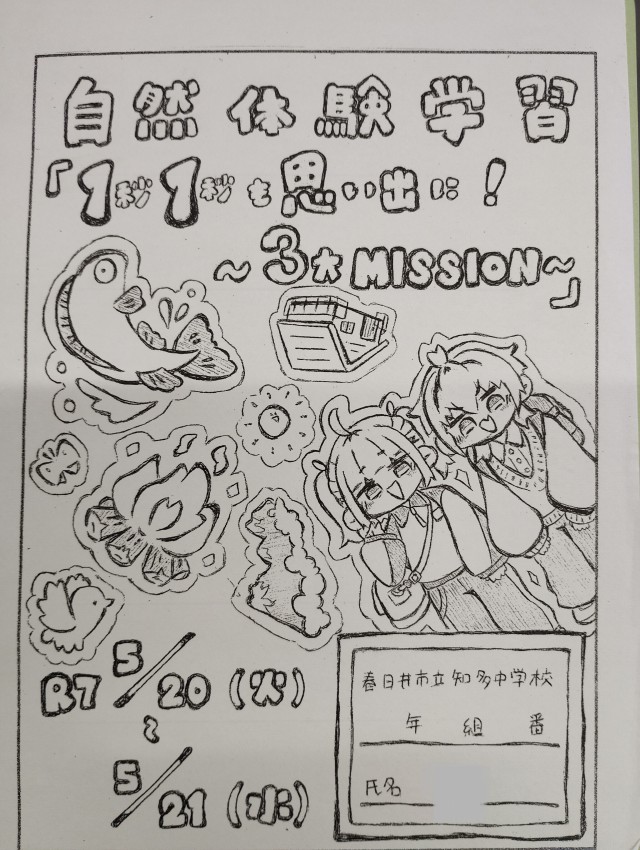 自然体験学習
「1秒1秒も思い出に!
~3大MISSION~」
R7 5/20(火)
~
5/21(水)
春日井市立知多中学校
年 組 番
氏名